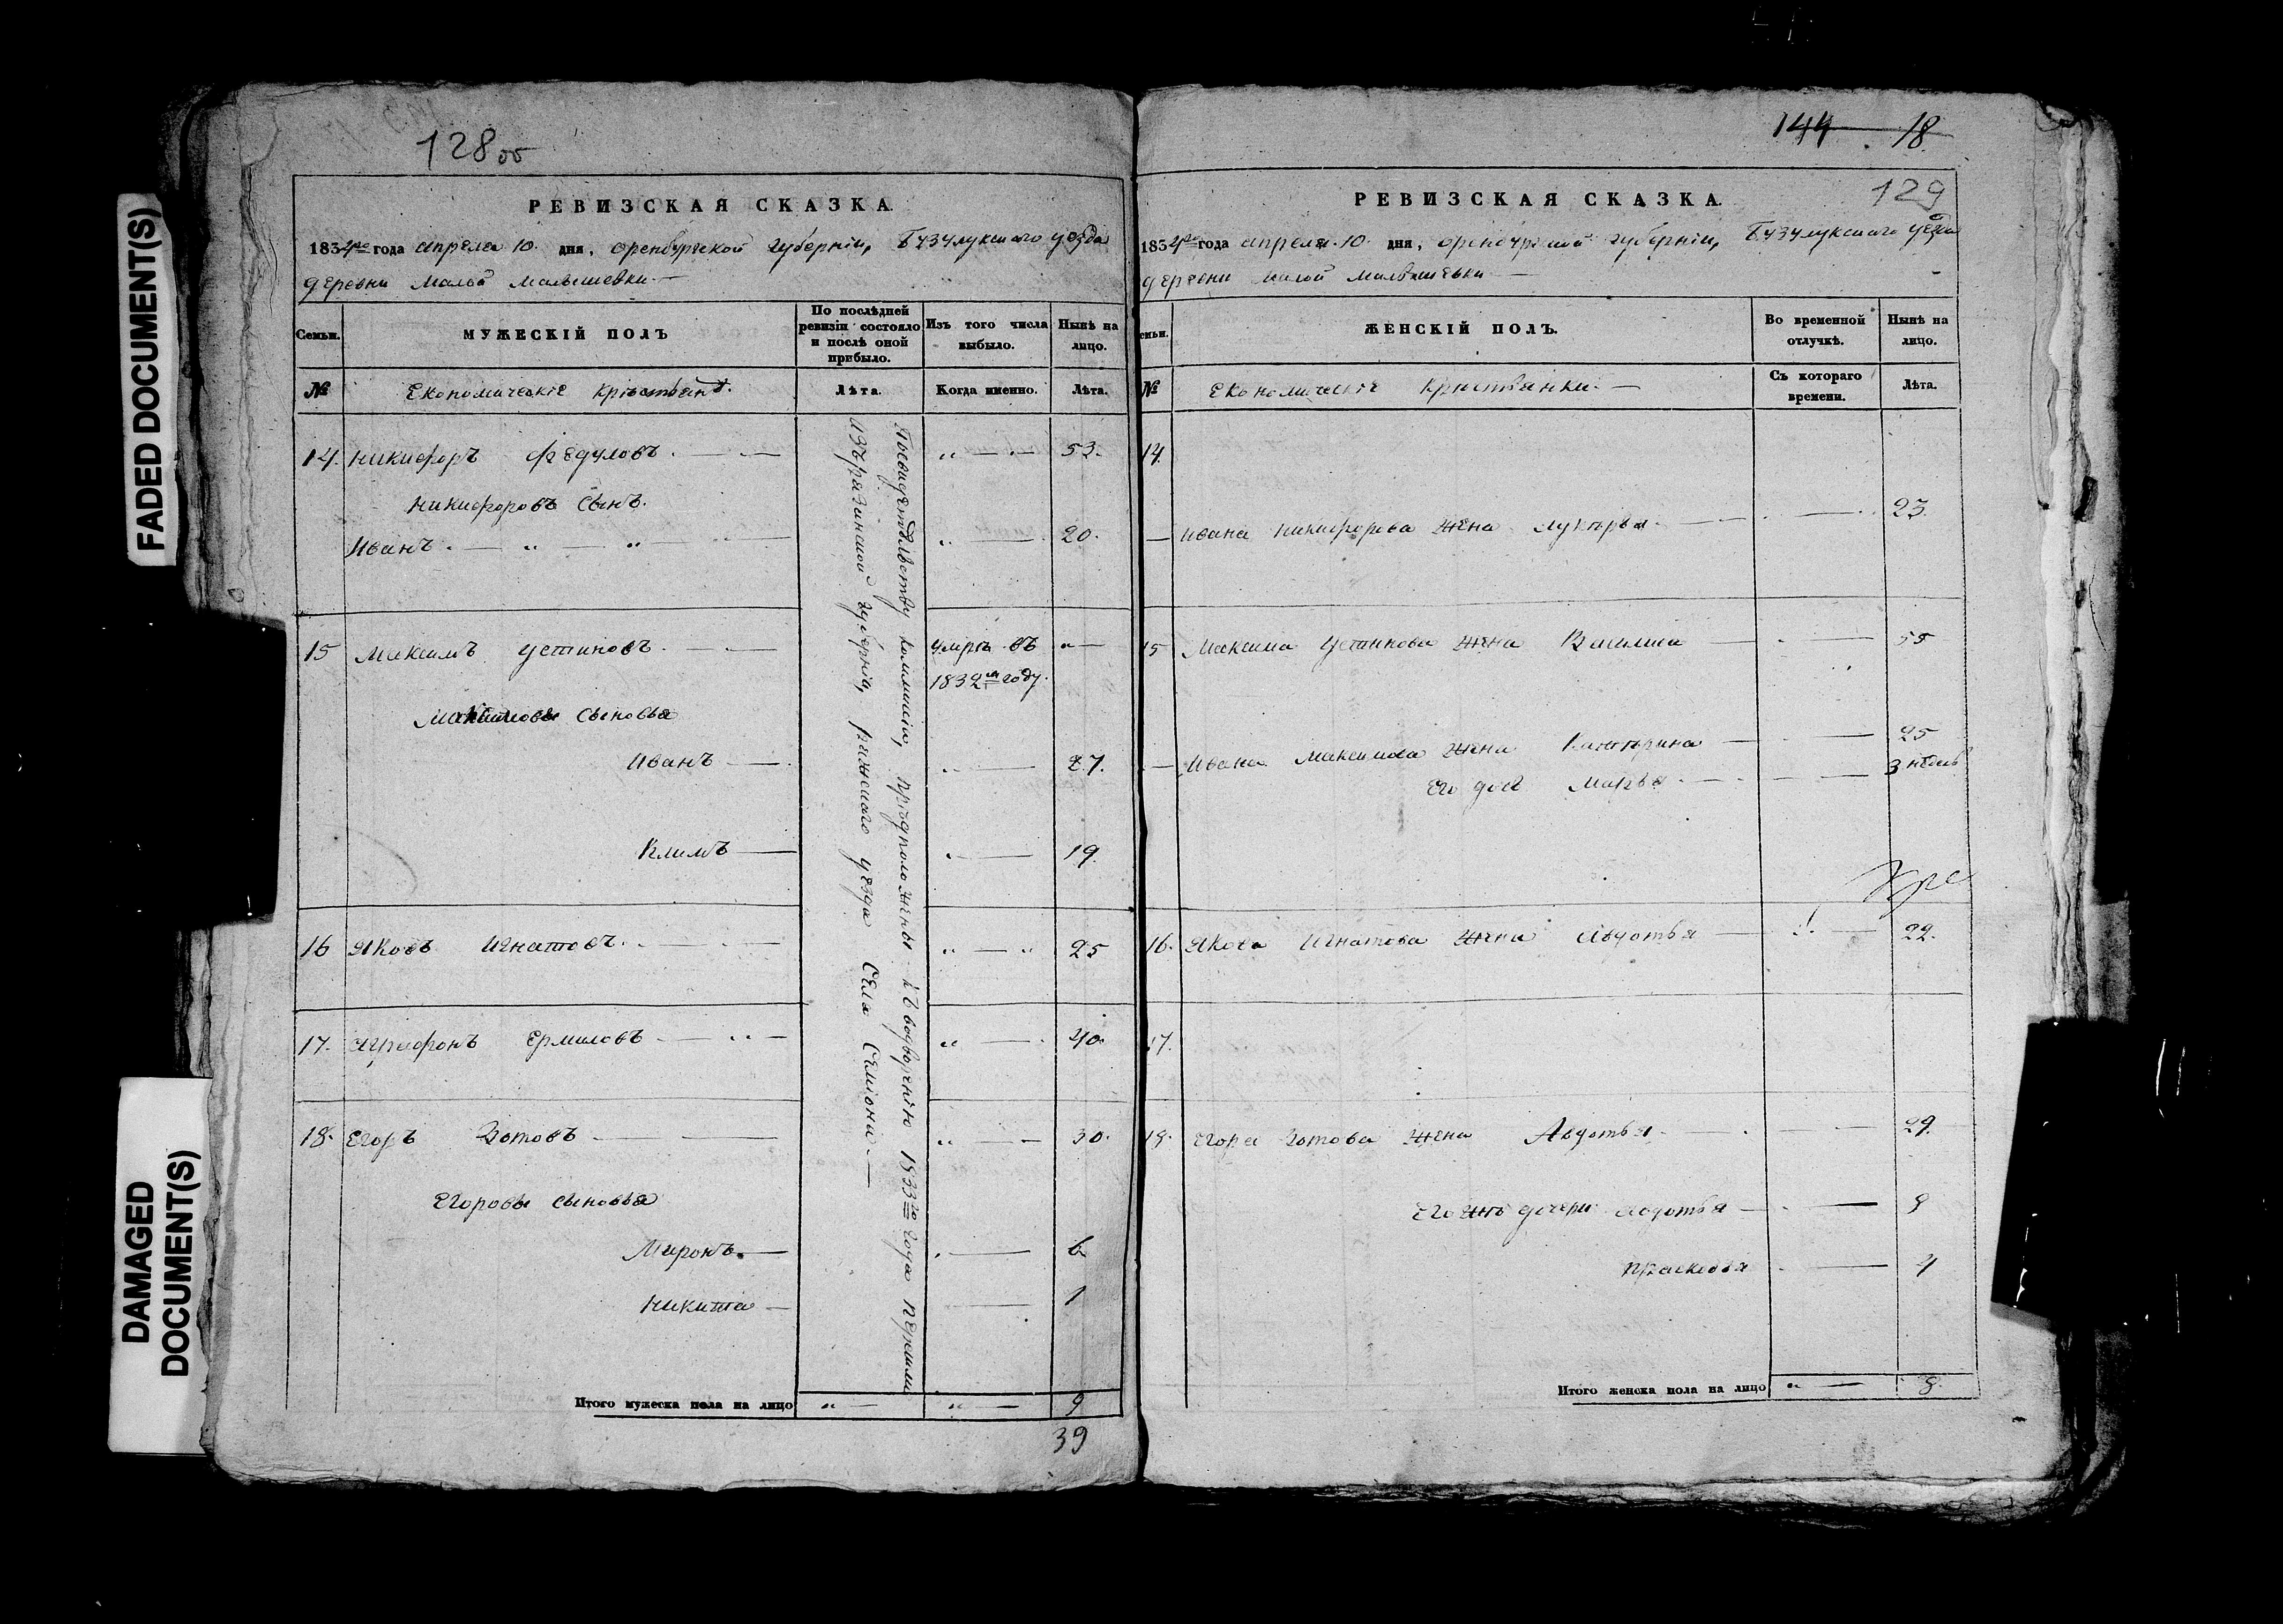 FADED DOCUMENT(S)
DAMAGED
DOCUMENT(S)
128 об
РЕВИЗСКАЯ СКАЗКА.
1834го года апреля 10. дня, оренбургской губернiи, Бузулукскаго уезда
деревни Малой Малышевки
Семьи.
МУЖЕСКІЙ ПОЛЪ
По послѣдней
ревизіи состояло
и послѣ оной
прибыло.
Изъ того числа
выбыло.
Нынѣ на
лицо.
№
Лѣта.
Когда именно.
Лѣта.
14. Никифоръ Федуловъ. 53.
Никифоровъ сынъ.
Иванъ. 20.
15 Максимъ Устиновъ. умръ въ
1832м году.
Максимовы сыновья
Иванъ 27.
Климъ 19.
16 Яковъ Игнатовъ. 25
17. Агрифонъ Ермиловъ 40.
18. Егоръ Зотовъ 30.
Егоровы сыновья
Миронъ. 6
Никита 1
По свидетельству коммисіи, предположены къ водворенію 1833го года
изъ рязанской губерніи, ряжскаго уезда села Семіона.
Итого мужеска пола на лицо 9
39
144 18
129
РЕВИЗСКАЯ СКАЗКА.
1834го года апреля. 10. дня, оренбургской губернiи, Бузулукскаго уезда
деревни малой малышевки
Семьи.
ЖЕНСКІЙ ПОЛЪ.
Во временной
отлучкѣ.
Нынѣ на
лицо.
№
Съ котораго
времени.
Лѣта.
14.
Ивана Никифорова жена Лукерья. 23.
15 Максима Устинова жена Василиса 55
Ивана Максимова жена Катерина 25
Его дочь Марья 3 недель
16. Якова Игнатова жена Авдотья 22.
17.
18. Егора Зотова жена Авдотья 29.
Его же дочери Авдотья 8
Прасковья 4
Итого женска пола на лицо 8.